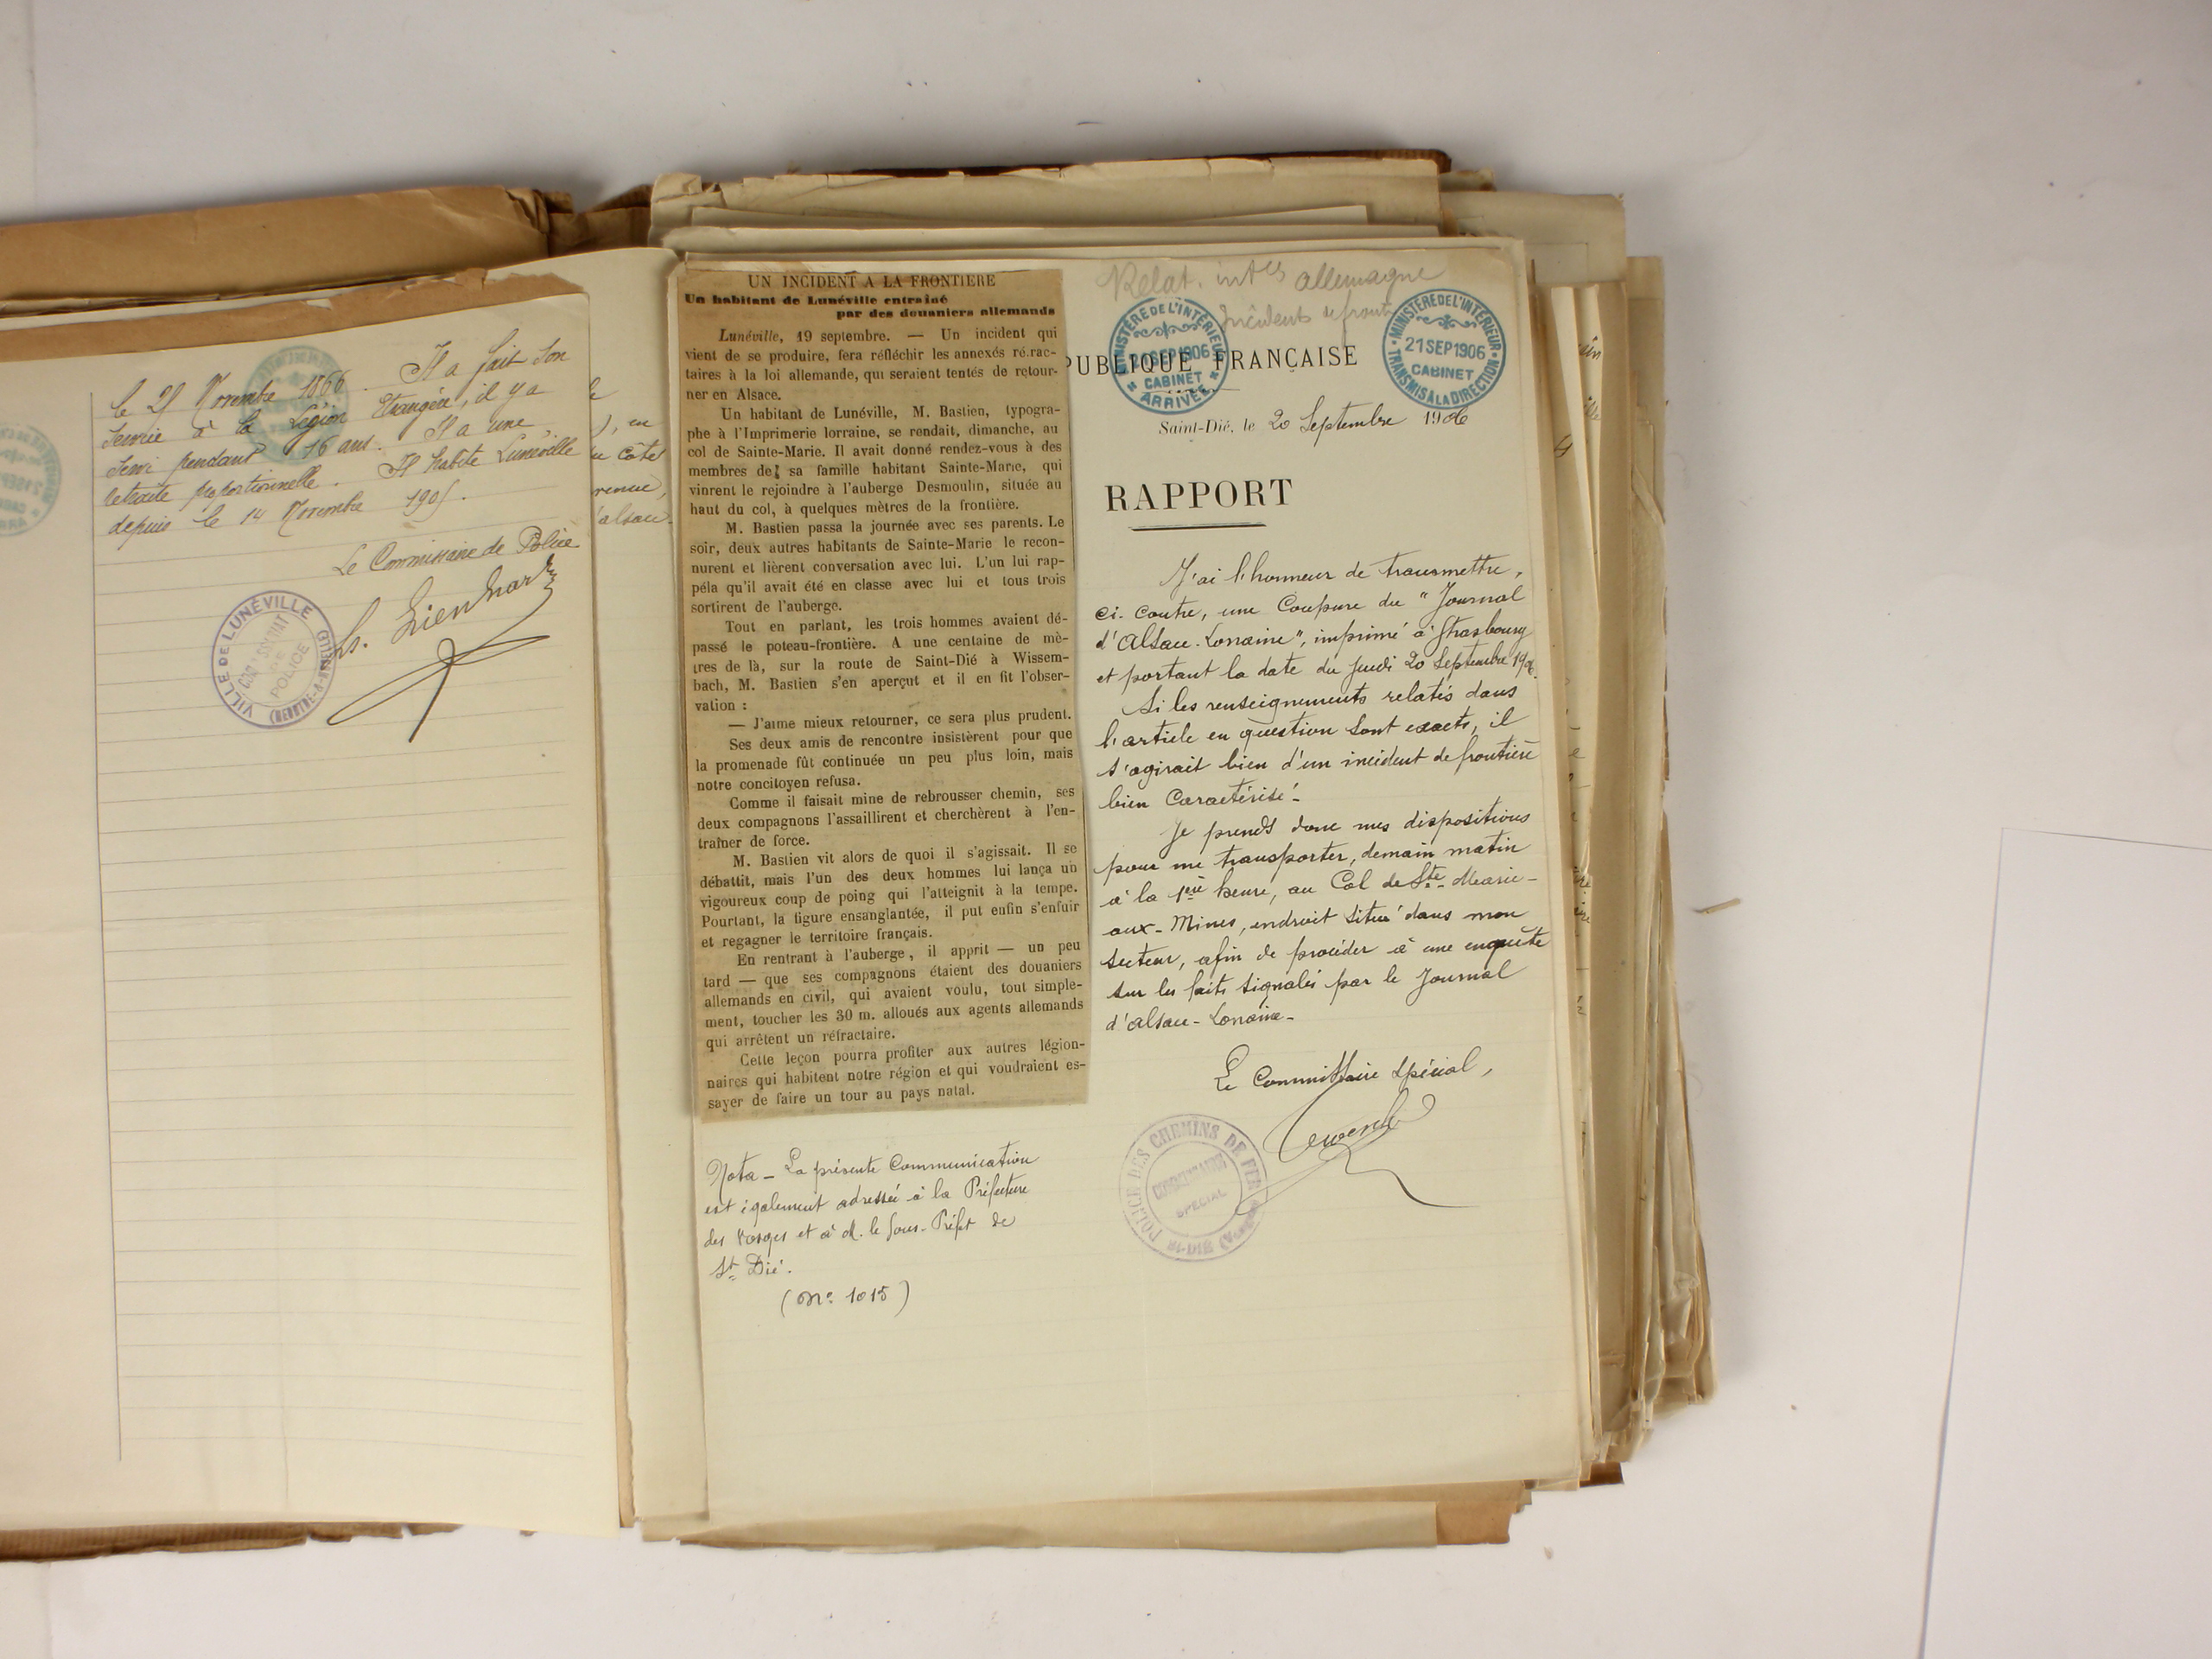 le 25 Novembre 1866. Il a fait son
service à la Légion Etrangère, il y a
servi pendant 16 ans. Il a une
retraite proportionnelle. Il habite Lunéville
depuis le 14 Novembre 1905.
Le Commissaire de Police
VILLE DE LUNÉVILLE
POLICE
), en
côté
venue,
alsace
UN INCIDENT A LA FRONTIERE
Un habitant de Lunéville entraîné
par des douaniers allemands
Lunéville, 19 septembre. — Un incident qui
vient de se produire, fera réfléchir les annexés réfrac-
taires à la loi allemande, qui seraient tentés de retour-
ner en Alsace.
Un habitant de Lunéville, M. Bastien, typogra-
phe à l'Imprimerie lorraine, se rendait, dimanche, au
col de Sainte-Marie. Il avait donné rendez-vous à des
membres de sa famille habitant Sainte-Marie, qui
vinrent le rejoindre à l'auberge Desmoulin, située au
haut du col, à quelques mètres de la frontière.
M. Bastien passa la journée avec ses parents. Le
soir, deux autres habitants de Sainte-Marie le recon-
nurent et lièrent conversation avec lui. L'un lui rap-
péla qu'il avait été en classe avec lui et tous trois
sortirent de l'auberge.
Tout en parlant, les trois hommes avaient dé-
passé le poteau-frontière. A une centaine de mè-
tres de là, sur la route de Saint-Dié à Wissem-
bach, M. Bastien s'en aperçut et il en fit l'obser-
vation :
— J'aime mieux retourner, ce sera plus prudent.
Ses deux amis de rencontre insistèrent pour que
la promenade fût continuée un peu plus loin, mais
notre concitoyen refusa.
Comme il faisait mine de rebrousser chemin, ses
deux compagnons l'assaillirent et cherchèrent à l'en-
traîner de force.
M. Bastien vit alors de quoi il s'agissait. Il se
débattit, mais l'un des deux hommes lui lança un
vigoureux coup de poing qui l'atteignit à la tempe.
Pourtant, la figure ensanglantée, il put enfin s'enfuir
et regagner le territoire français.
En rentrant à l'auberge, il apprit — un peu
tard — que ses compagnons étaient des douaniers
allemands en civil, qui avaient voulu, tout simple-
ment, toucher les 30 m. alloués aux agents allemands
qui arrêtent un réfractaire.
Cette leçon pourra profiter aux autres légion-
naires qui habitent notre région et qui voudraient es-
sayer de faire un tour au pays natal.
Nota — La présente Communication
est également adressée à la Préfecture
des Vosges et à M. le Sous-Préfet de
St Dié.
(No 1015)
Relat. intles allemagne
Incidents de front
MINISTÈRE DE L'INTÉRIEUR
20 SEP 1906
CABINET
ARRIVÉE
MINISTÈRE DE L'INTÉRIEUR
21 SEP 1906
CABINET
TRANSMIS A LA DIRECTION
PUBLIQUE FRANÇAISE
Saint-Dié, le 20 Septembre 1906
RAPPORT
J'ai l'honneur de transmettre,
ci-contre, une Coupure du "Journal
d'Alsace-Lorraine", imprimé à Strasbourg
et portant la date du Jeudi 20 Septembre 1906.
Si les renseignements relatés dans
l'article en question sont exacts, il
s'agirait bien d'un incident de frontière
bien Caractérisé.
Je prends donc mes dispositions
pour me transporter, demain matin
à la 1ère heure, au Col de Ste-Marie-
aux-Mines, endroit situé dans mon
secteur, afin de procéder à une enquête
sur les faits signalés par le Journal
d'Alsace-Lorraine-
Le Commissaire Spécial,
POLICE DES CHEMINS DE FER
COMMISSAIRE
SPECIAL
ST-DIE (Vosges)